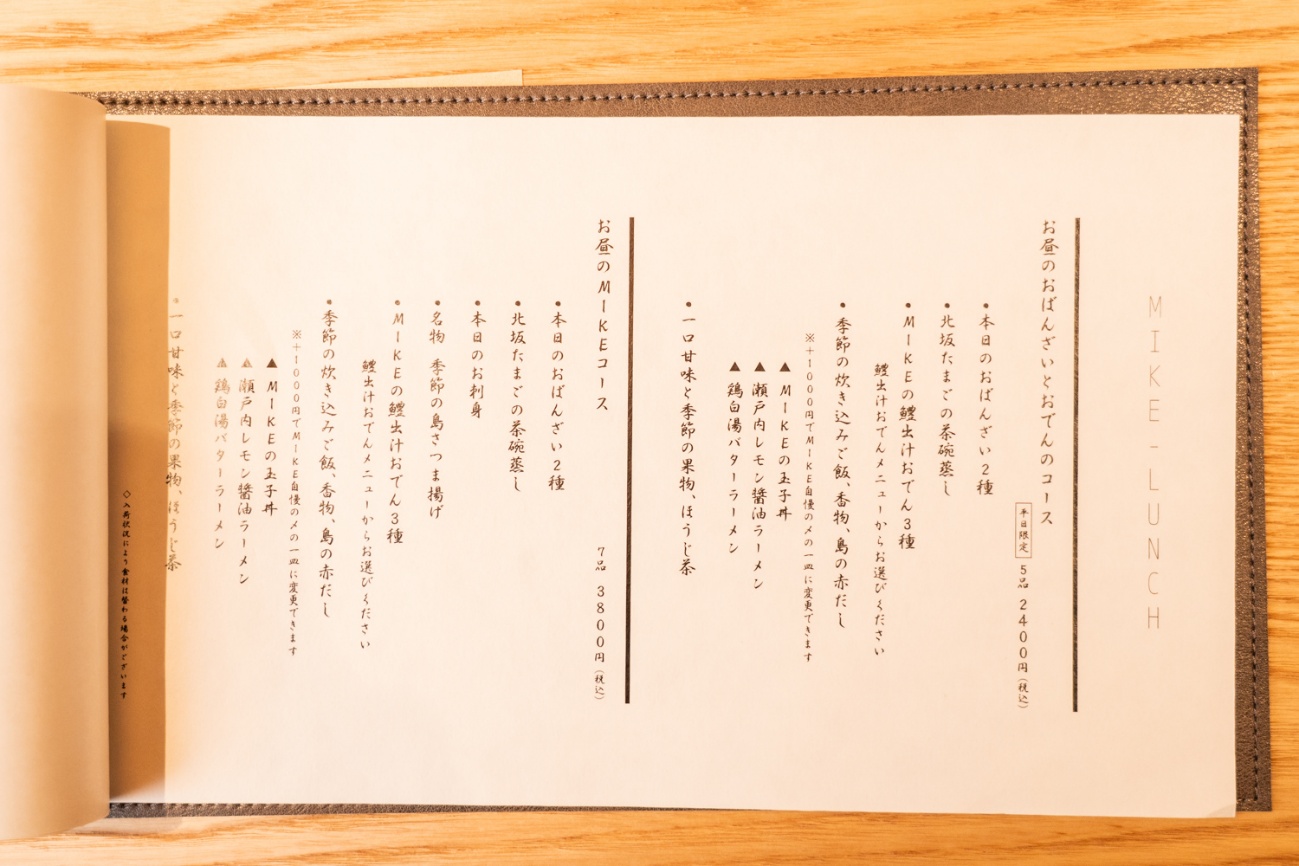 MIKE-LUNCH
お昼のおばんざいとおでんのコース
平日限定 5品 2400円(税込)
・本日のおばんざい2種
・北坂たまごの茶碗蒸し
・MIKEの鰹出汁おでん3種
鰹出汁おでんメニューからお選びください
・季節の炊き込みご飯、香物、鳥の赤だし
※+1000円でMIKE自慢の〆の一皿に変更できます
▲MIKEの玉子丼
▲瀬戸内レモン醤油ラーメン
▲鶏白湯バターラーメン
・一口甘味と季節の果物、ほうじ茶
お昼のMIKEコース
7品 3800円(税込)
・本日のおばんざい2種
・北坂たまごの茶碗蒸し
・本日のお刺身
・名物 季節の鳥さつま揚げ
・MIKEの鰹出汁おでん3種
鰹出汁おでんメニューからお選びください
・季節の炊き込みご飯、香物、鳥の赤だし
※+1000円でMIKE自慢の〆の一皿に変更できます
▲MIKEの玉子丼
▲瀬戸内レモン醤油ラーメン
▲鶏白湯バターラーメン
・一口甘味と季節の果物、ほうじ茶
◇入荷状況により食材は変わる場合がございます